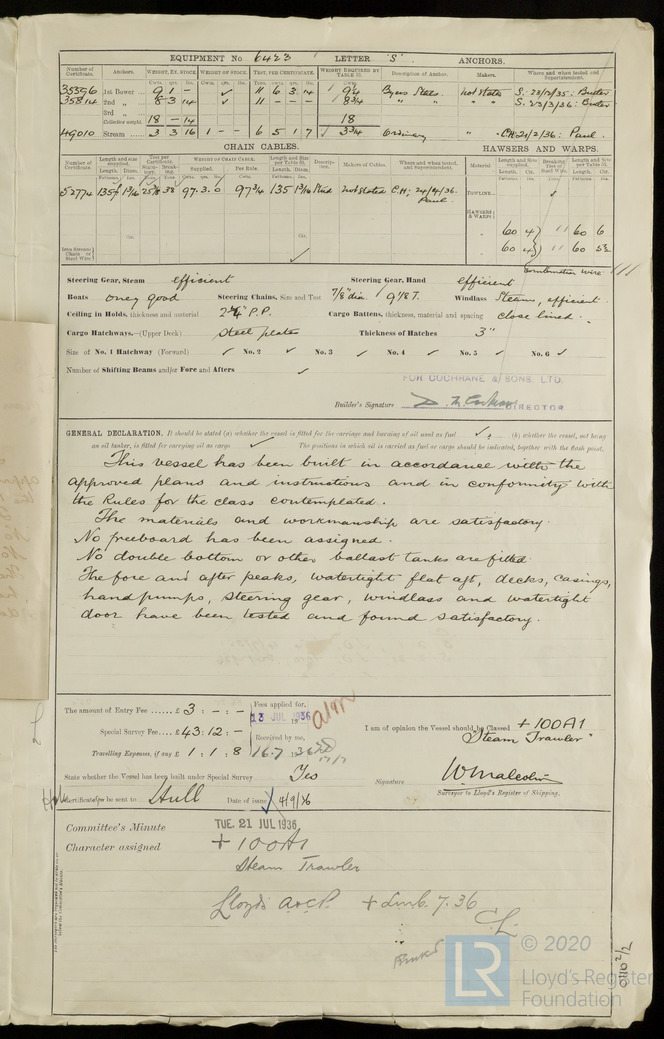 EQUIPMENT No 6423 LETTER "S" ANCHORS.
Number of Certificate. Anchors. WEIGHT, EX. STOCK WEIGHT OF STOCK. TEST, PER CERTIFICATE. WEIGHT REQUIRED BY TABLE Description of Anchor. Makers. Where and when tested and Superintendent.
35396 1st Bower 9 1 - ✓ 11 6 3 14 9¼ Byers Stkls. not stated S: 23/12/35: Buster
35814 2nd „ 8 3 14 ✓ 11 - - - 8¾ " " " " S: 23/3/36: Buster
3rd „
Collective weight 18 - 14 18
49010 Stream 3 3 16 1 - - 6 5 1 7 3¾ Ordinary " C.H: 20/2/36: Paul.
CHAIN CABLES. HAWSERS AND WARPS.
Number of Certificate. Length and size supplied. Test per Certificate. WEIGHT OF CHAIN CABLE. Length and Size per Table Makers of Cables. Where and when tested, and Superintendent. Material Length and Size supplied. Breaking Test of Steel Wire. Length and Size per Table
Supplied. Per Rule
52774 97.3.0 97¾ 135 Stud not stated C.H: 24/4/36. Paul
TOWLINE
HAWSERS & WARPS
60 4 " 60 6
60 4 " 60 5½
Combination wire
Iron Stream Chain or Steel Wire
Steering Gear, Steam efficient Steering Gear, Hand efficient
Boats one, good Steering Chains, Size and Test 7/8" dia. 9⅛ T. Windlass Steam, efficient
Ceiling in Holds, thickness and material 2¼" P.P. Cargo Battens, thickness, material and spacing close lined.
Cargo Hatchways.—(Upper Deck) Steel plates Thickness of Hatches 3"
Size of No. 1 Hatchway (Forward) ✓ No. 2 ✓ No. 3 ✓ No. 4 ✓ No. 5 ✓ No. 6 ✓
Number of Shifting Beams and/or Fore and Afters ✓
FOR COCHRANE & SONS. LTD.
Builder's Signature DIRECTOR
GENERAL DECLARATION. It should be stated (a) whether the vessel is fitted for the carriage and burning of oil used as fuel ✓ (b) whether the vessel, not being
an oil tanker, is fitted for carrying oil as cargo ✓ The positions in which oil is carried as fuel or cargo should be indicated, together with the flash point.
This vessel has been built in accordance with the
approved plans and instructions and in conformity with
the Rules for the class contemplated.
The materials and workmanship are satisfactory.
No freeboard has been assigned.
No double bottom or other ballast tanks are fitted.
The fore and after peaks, watertight flat aft, decks, casings,
hand pumps, steering gear, windlass and watertight
door have been tested and found satisfactory.
The amount of Entry Fee ...... £ 3 : - : - Fees applied for,
13 JUL 1936
Special Survey Fee... £ 43 : 12 : - Received by me,
Travelling Expenses, if any £ 1 : 1 : 8 16.7.1936
I am of opinion the Vessel should be Classed + 100A1
"Steam Trawler"
State whether the Vessel has been built under Special Survey Yes
Signature W. Malcolm
Surveyor to Lloyd's Register of Shipping.
Certificate to be sent to Hull Date of issue 4/9/36
Committee's Minute TUE. 21 JUL 1936
Character assigned + 100A1
Steam Trawler
Lloyd's A & C.P. + LMC 7.36
CL
LR
© 2020
Lloyd's Register
Foundation
0110 2/2